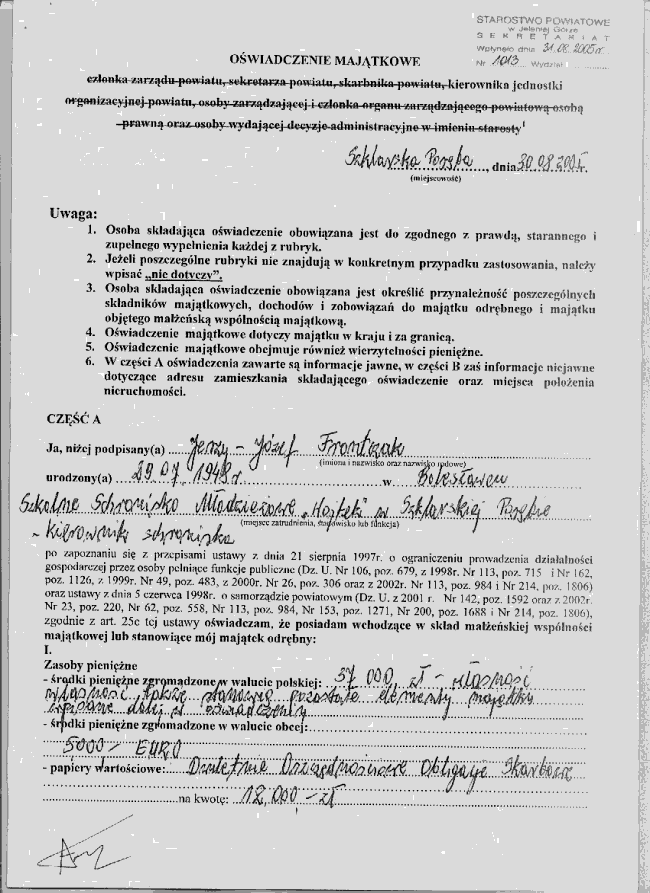 STAROSTWO POWIATOWE
w Jeleniej Górze
SEKRETARIAT
Wpłynęło dnia 31.08.2005r.
Nr 1013 Wydział
OŚWIADCZENIE MAJĄTKOWE
członka zarządu powiatu, sekretarza powiatu, skarbnika powiatu, kierownika jednostki
organizacyjnej powiatu, osoby zarządzającej i członka organu zarządzającego powiatową osobą
prawną oraz osoby wydającej decyzje administracyjne w imieniu starosty1
Szklarska Poręba, dnia 30.08.2005r.
(miejscowość)
Uwaga:
1. Osoba składająca oświadczenie obowiązana jest do zgodnego z prawdą, starannego i
zupełnego wypełnienia każdej z rubryk.
2. Jeżeli poszczególne rubryki nie znajdują w konkretnym przypadku zastosowania, należy
wpisać „nie dotyczy".
3. Osoba składająca oświadczenie obowiązana jest określić przynależność poszczególnych
składników majątkowych, dochodów i zobowiązań do majątku odrębnego i majątku
objętego małżeńską wspólnością majątkową.
4. Oświadczenie majątkowe dotyczy majątku w kraju i za granicą.
5. Oświadczenie majątkowe obejmuje również wierzytelności pieniężne.
6. W części A oświadczenia zawarte są informacje jawne, w części B zaś informacje niejawne
dotyczące adresu zamieszkania składającego oświadczenie oraz miejsca położenia
nieruchomości.
CZĘŚĆ A
Ja, niżej podpisany(a) Jerzy - Józef Frontczak
(imiona i nazwisko oraz nazwisko rodowe)
urodzony(a) 29 07 1948r w Bolesławcu
Szkolne Schronisko Młodzieżowe „Wojtek" w Szklarskiej Porębie
(miejsce zatrudnienia, stanowisko lub funkcja)
- kierownik schroniska
po zapoznaniu się z przepisami ustawy z dnia 21 sierpnia 1997r. o ograniczeniu prowadzenia działalności
gospodarczej przez osoby pełniące funkcje publiczne (Dz. U. Nr 106, poz. 679, z 1998r. Nr 113, poz. 715 i Nr 162,
poz. 1126, z 1999r. Nr 49, poz. 483, z 2000r. Nr 26, poz. 306 oraz z 2002r. Nr 113, poz. 984 i Nr 214, poz. 1806)
oraz ustawy z dnia 5 czerwca 1998r. o samorządzie powiatowym (Dz. U. z 2001 r. Nr 142, poz. 1592 oraz z 2002r.
Nr 23, poz. 220, Nr 62, poz. 558, Nr 113, poz. 984, Nr 153, poz. 1271, Nr 200, poz. 1688 i Nr 214, poz. 1806),
zgodnie z art. 25c tej ustawy oświadczam, że posiadam wchodzące w skład małżeńskiej wspólności
majątkowej lub stanowiące mój majątek odrębny:
I.
Zasoby pieniężne
- środki pieniężne zgromadzone w walucie polskiej: 37 000 zł - własność
własność także stanowią pozostałe elementy majątku
wpisane dalej w oświadczeniu
- środki pieniężne zgromadzone w walucie obcej:
5000 - EURO
- papiery wartościowe: Oszczędnościowe Obligacje Skarbowe
na kwotę: 12.000 - zł